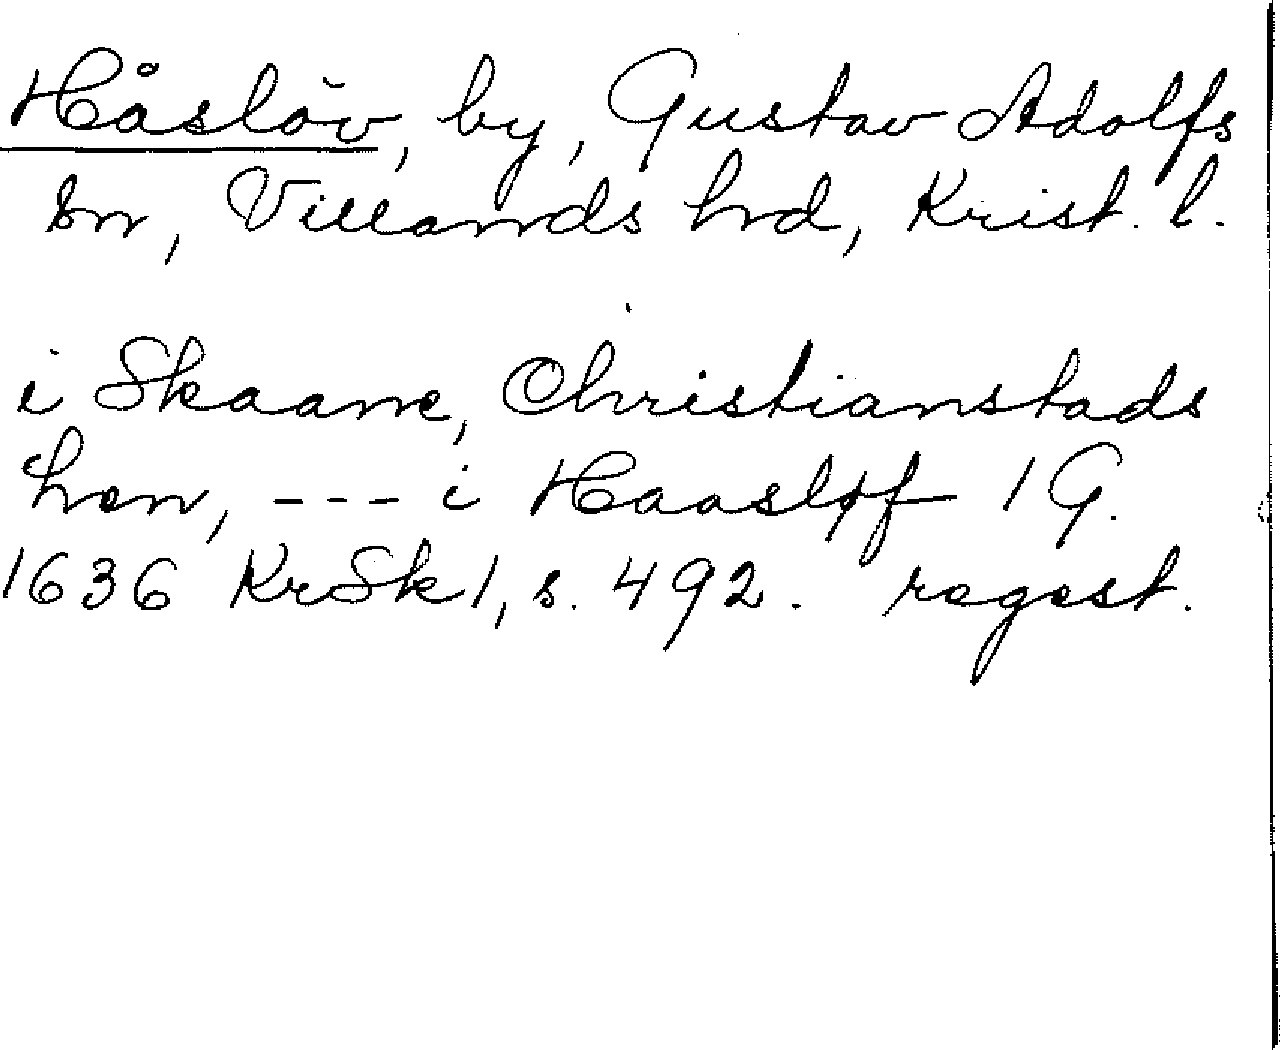 Håslöv, by, Gustav Adolfs
sn, Villands hrd, Krist. l.
i Skaane, Christianstads
Len, --- i Haasløf 1 G.
1636 KrSk 1, s. 492. regest.